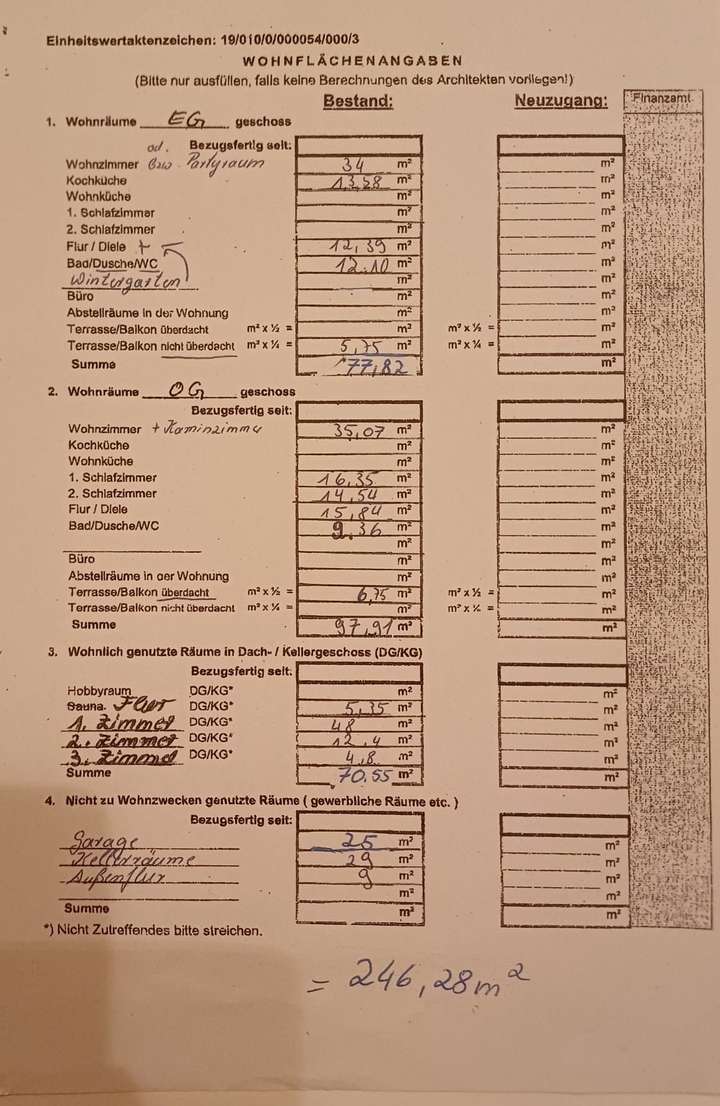 Einheitswertaktenzeichen: 19/010/0/000054/000/3
WOHNFLÄCHENANGABEN
(Bitte nur ausfüllen, falls keine Berechnungen des Architekten vorliegen!)
Bestand: Neuzugang: Finanzamt
1. Wohnräume EG geschoss
od. Bezugsfertig seit:
Wohnzimmer bzw. Partyraum 34 m² m²
Kochküche 13,58 m² m²
Wohnküche m² m²
1. Schlafzimmer m² m²
2. Schlafzimmer m² m²
Flur / Diele + 12,39 m² m²
Bad/Dusche/WC 12.10 m² m²
Wintergarten m² m²
Büro m² m²
Abstellräume in der Wohnung m² m²
Terrasse/Balkon überdacht m² x ½ = m² m² x ½ = m²
Terrasse/Balkon nicht überdacht m² x ¼ = 5,75 m² m² x ¼ = m²
Summe 77,82 m²
2. Wohnräume OG geschoss
Bezugsfertig seit:
Wohnzimmer + Kaminzimmer 35,07 m² m²
Kochküche m² m²
Wohnküche m² m²
1. Schlafzimmer 16,35 m² m²
2. Schlafzimmer 14,54 m² m²
Flur / Diele 15,84 m² m²
Bad/Dusche/WC 9.36 m² m²
m² m²
Büro m² m²
Abstellräume in der Wohnung m² m²
Terrasse/Balkon überdacht m² x ½ = 6,75 m² m² x ½ = m²
Terrasse/Balkon nicht überdacht m² x ¼ = m² m² x ¼ = m²
Summe 97,91 m² m²
3. Wohnlich genutzte Räume in Dach- / Kellergeschoss (DG/KG)
Bezugsfertig seit:
Hobbyraum DG/KG* m² m²
Sauna Flur DG/KG* 5,35 m² m²
1. Zimmer DG/KG* 48 m² m²
2. Zimmer DG/KG* 12,4 m² m²
3. Zimmer DG/KG* 4,8 m² m²
Summe 70,55 m² m²
4. Nicht zu Wohnzwecken genutzte Räume ( gewerbliche Räume etc. )
Bezugsfertig seit:
Garage 25 m² m²
Kellerräume 29 m² m²
Außenflur 9 m² m²
m² m²
Summe m² m²
*) Nicht Zutreffendes bitte streichen.
= 246,28 m²